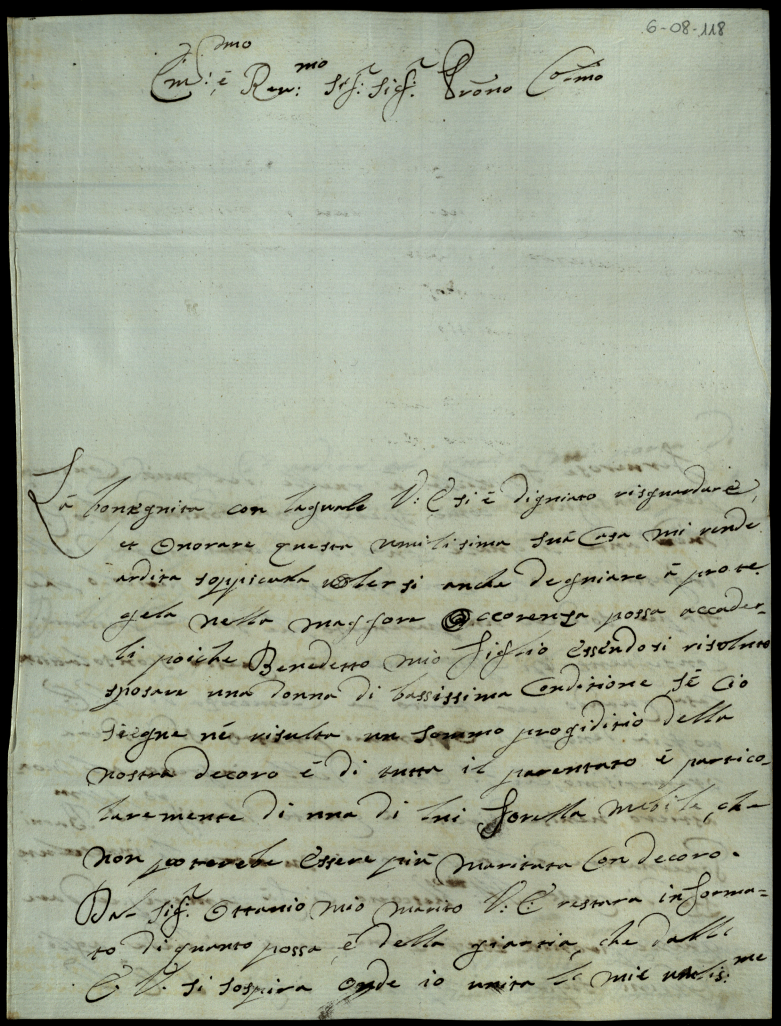 6-08-118
Em:mo é Reu:mo Sig:r Sig:r Prōno Co:mo
La benegnita con laquale V: E si é digniato risguardare,
et Onorare questa umilisima sua Casa mi rende
ardita soppicarla volersi anche degniare á prote-
gela nella maggiore Occorenza possa accader-
li poiche Benedetto mio figlio essendosi risoluto
sposare una donna di bassissima Conditione, sé Cio
siegue né risulta un sommo progiditio della
nostra decoro é di tutta il parentato é partico-
larmente di una di lui sorella nubile, che
non poterebe essere piú maritata con decoro.
Dal Sig:r Ottavio mio marito V: E restara informa-
to di quanto possa, é della giustia, che dalli
E V: si sospira onde io unita le mie umilis:me